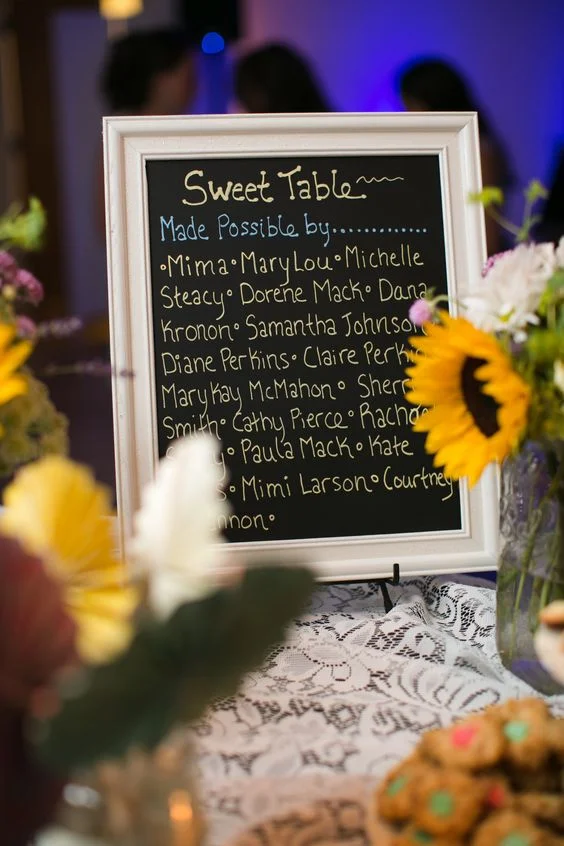 Sweet Table
Made Possible by..............
•Mima•MaryLou•Michelle
Steacy• Dorene Mack• Dana
Kronon• Samantha Johnson
Diane Perkins• Claire
MaryKay McMahon•
Smith• Cathy Pierce•
Paula Mack• Kate
•Mimi Larson•Courtney